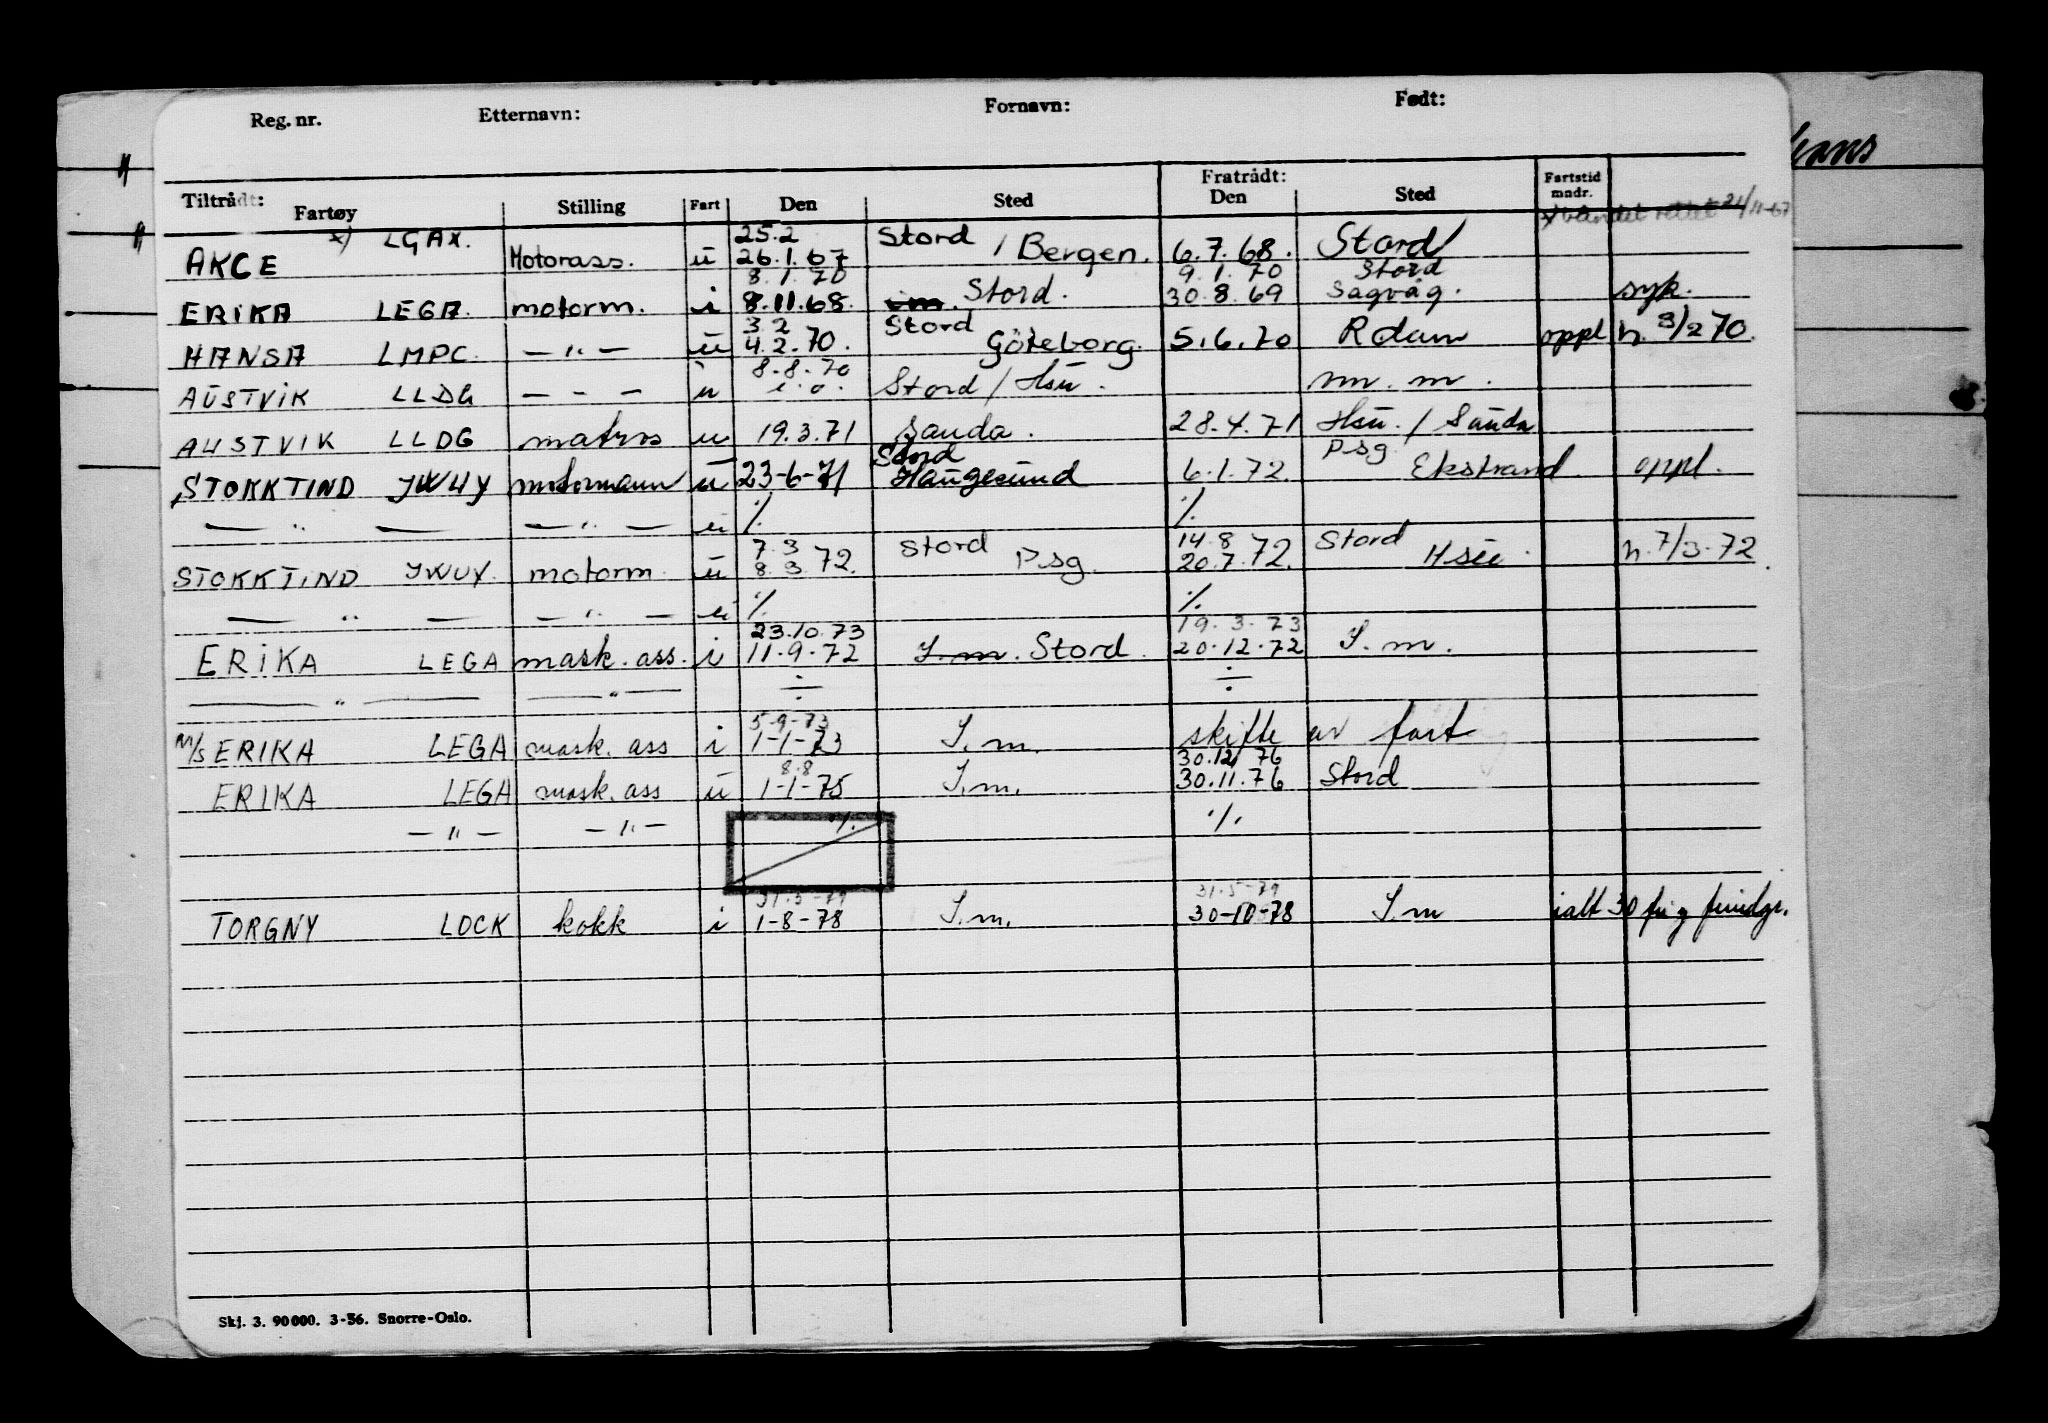 Reg. nr. Etternavn: Fornavn: Født:
Tiltrådt: Fratrådt: Fartstid
Fartøy Stilling Fart Den Sted Den Sted mndr.
24/11-67
x) LGAX. 25.2 Stord
AKCE Motorass. ü 26.1.67 / Bergen. 6.7.68. Stord
8.1.70 9.1.70 Stord
ERIKA LEGA. motorm. i 8.11.68. Stord. 30.8.69 Sagvåg. syk.
3.2 Stord
HANSA LMPC. — " — ü 4.2.70. Göteborg. 5.6.70 Rdam oppl h. 3/2 70.
8-8-70
AUSTVIK LLDG — - — u Stord / Hsu. m. m.
AUSTVIK LLDG matros u 19.3.71 Sauda. 28.4.71 Hsu. / Sauda
Stord Psg
STOKKTIND JWUY motormann u 23-6-71 Haugesund 6.1.72. Ekstrand oppl.
— " — — " — u ./. ./.
7.3 Stord 14.8 Stord
STOKKTIND JWUY. motorm. ü 8.3 72. Psg. 20.7.72. Hsu. h. 7/3-72
— " — — " — u ./. ./.
23.10.73 19.3.73
ERIKA LEGA mask. ass. i 11.9.72 I.m. Stord. 20.12.72 I.m.
— " — — " — ÷ ÷
5-9-73
M/S ERIKA LEGA mask. ass i 1-1-73 I.m. skifte av fart
8.8 30.12 76
ERIKA LEGA mask. ass ü 1-1-75 I.m. 30.11.76 Stord
— " — — " — ./. ./.
31-5-79 31.5-79
TORGNY LOCK kokk i 1-8-78 I.m. 30-10-78 I.m ialt 30
Skj. 3. 90000. 3-56. Snorre-Oslo.